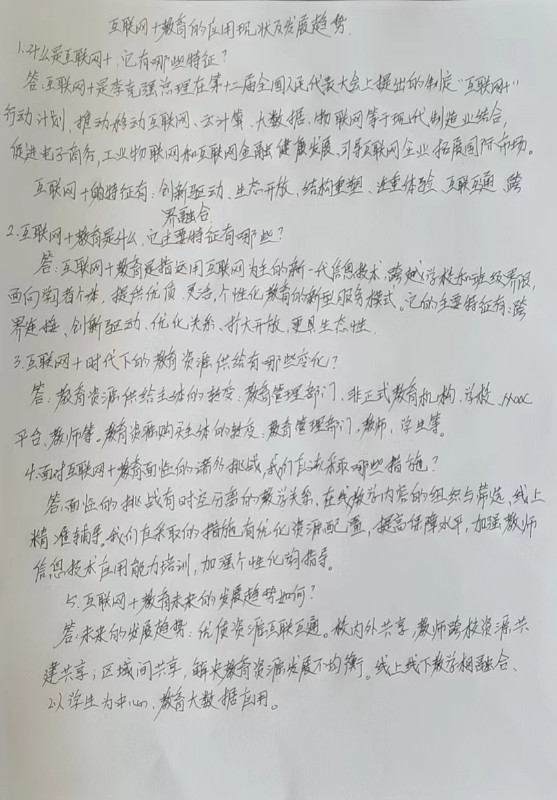 互联网+教育的应用现状及发展趋势
1.什么是互联网+,它有哪些特征?
答:互联网+是李克强总理在第十二届全国人民代表大会上提出的制定“互联网+”
行动计划,推动移动互联网、云计算、大数据、物联网等于现代制造业结合,
促进电子商务,工业物联网和互联网金融健康发展,引导互联网企业拓展国际市场。
互联网+的特征有:创新驱动、生态开放、结构重塑、注重体验、互联互通、跨
界融合.
2.互联网+教育是什么,它主要特征有哪些?
答:互联网+教育是指运用互联网为主的新一代信息技术,跨越学校和班级界限,
面向学习者个体,提供优质、灵活、个性化教育的新型服务模式。它的主要特征有:跨
界连接、创新驱动、优化关系、扩大开放、更具生态性.
3.互联网+时代下的教育资源供给有哪些变化?
答:教育资源供给主体的转变:教育管理部门、非正式教育机构、学校、MOOC
平台、教师等。教育资源购买主体的转变:教育管理部门,教师,学生等。
4.面对互联网+教育面临的诸多挑战,我们应该采取哪些措施?
答:面临的挑战有时空分离的教学关系、在线教学内容的组织与筛选,线上
精准辅导。我们应采取的措施有优化资源配置,提高保障水平,加强教师
信息技术应用能力培训,加强个性化的指导。
5.互联网+教育未来的发展趋势如何?
答:未来的发展趋势:优质资源互联互通。校内外共享,教师跨校资源共
建共享;区域间共享,解决教育资源发展不均衡。线上线下教学相融合、
以学生为中心、教育大数据应用。